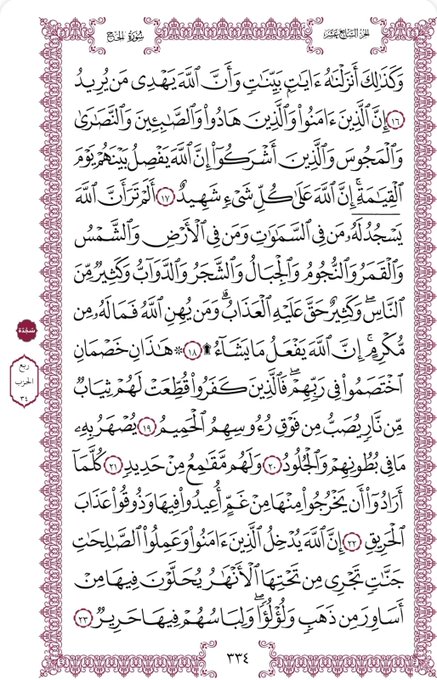 الجزء السابع عشر
سورة الحج
وَكَذَٰلِكَ أَنزَلْنَٰهُ ءَايَٰتِۭ بَيِّنَٰتٖ وَأَنَّ ٱللَّهَ يَهْدِي مَن يُرِيدُ
١٦ إِنَّ ٱلَّذِينَ ءَامَنُوا۟ وَٱلَّذِينَ هَادُوا۟ وَٱلصَّٰبِـِٔينَ وَٱلنَّصَٰرَىٰ
وَٱلْمَجُوسَ وَٱلَّذِينَ أَشْرَكُوٓا۟ إِنَّ ٱللَّهَ يَفْصِلُ بَيْنَهُمْ يَوْمَ
ٱلْقِيَٰمَةِۚ إِنَّ ٱللَّهَ عَلَىٰ كُلِّ شَىْءٖ شَهِيدٌ ١٧ أَلَمْ تَرَ أَنَّ ٱللَّهَ
يَسْجُدُ لَهُۥ مَن فِى ٱلسَّمَٰوَٰتِ وَمَن فِى ٱلْأَرْضِ وَٱلشَّمْسُ
وَٱلْقَمَرُ وَٱلنُّجُومُ وَٱلْجِبَالُ وَٱلشَّجَرُ وَٱلدَّوَآبُّ وَكَثِيرٌ مِّنَ
ٱلنَّاسِۖ وَكَثِيرٌ حَقَّ عَلَيْهِ ٱلْعَذَابُۗ وَمَن يُهِنِ ٱللَّهُ فَمَا لَهُۥ مِن
مُّكْرِمٍۚ إِنَّ ٱللَّهَ يَفْعَلُ مَا يَشَآءُ ۩ ١٨ ۞ هَٰذَانِ خَصْمَانِ
ٱخْتَصَمُوا۟ فِى رَبِّهِمْۖ فَٱلَّذِينَ كَفَرُوا۟ قُطِّعَتْ لَهُمْ ثِيَابٌ
مِّن نَّارٖ يُصَبُّ مِن فَوْقِ رُءُوسِهِمُ ٱلْحَمِيمُ ١٩ يُصْهَرُ بِهِۦ
مَا فِى بُطُونِهِمْ وَٱلْجُلُودُ ٢٠ وَلَهُم مَّقَٰمِعُ مِنْ حَدِيدٖ ٢١ كُلَّمَآ
أَرَادُوٓا۟ أَن يَخْرُجُوا۟ مِنْهَا مِنْ غَمٍّ أُعِيدُوا۟ فِيهَا وَذُوقُوا۟ عَذَابَ
ٱلْحَرِيقِ ٢٢ إِنَّ ٱللَّهَ يُدْخِلُ ٱلَّذِينَ ءَامَنُوا۟ وَعَمِلُوا۟ ٱلصَّٰلِحَٰتِ
جَنَّٰتٖ تَجْرِى مِن تَحْتِهَا ٱلْأَنْهَٰرُ يُحَلَّوْنَ فِيهَا مِنْ
أَسَاوِرَ مِن ذَهَبٖ وَلُؤْلُؤًاۖ وَلِبَاسُهُمْ فِيهَا حَرِيرٌ ٢٣
سجدة
ربع
الحزب
٣٤
٣٣٤